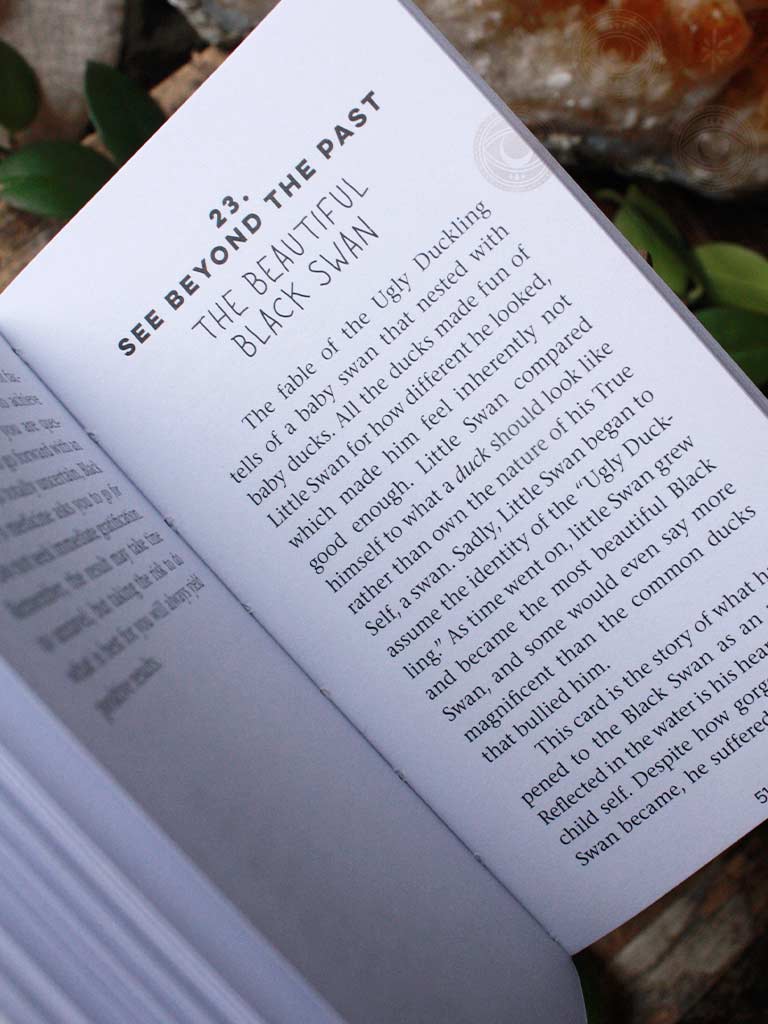 to achieve
you are ques-
go forward with an
totally uncertain, Black
Medicine asks you to go for
not seek immediate gratification.
Remember, the result may take time
to unravel, but taking the risk to do
what is best for you will always yield
positive results.
23.
SEE BEYOND THE PAST
THE BEAUTIFUL
BLACK SWAN
The fable of the Ugly Duckling
tells of a baby swan that nested with
baby ducks. All the ducks made fun of
Little Swan for how different he looked,
which made him feel inherently not
good enough. Little Swan compared
himself to what a duck should look like
rather than own the nature of his True
Self, a swan. Sadly, Little Swan began to
assume the identity of the “Ugly Duck-
ling.” As time went on, little Swan grew
and became the most beautiful Black
Swan, and some would even say more
magnificent than the common ducks
that bullied him.
This card is the story of what h
pened to the Black Swan as an
Reflected in the water is his hear
child self. Despite how gorg
Swan became, he suffered
51